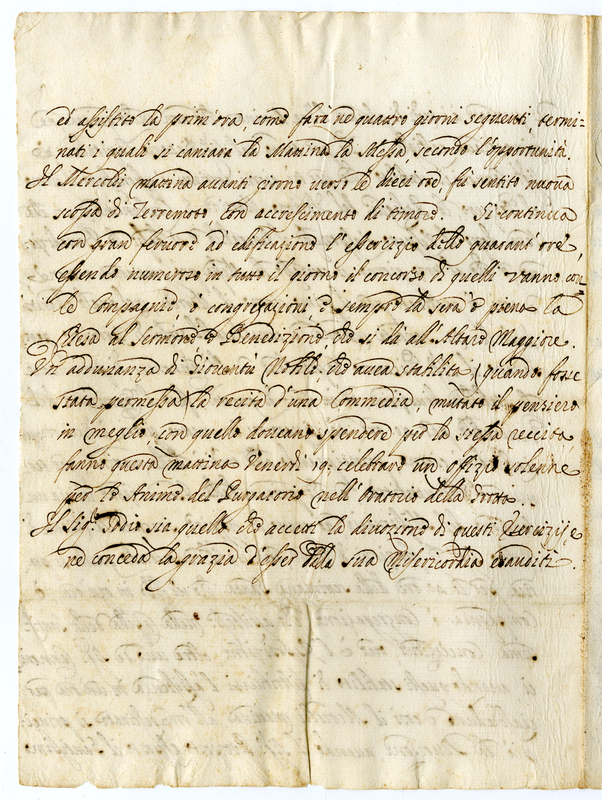 ed assistito la prim'ora, come farà ne quattro giorni seguenti, termi-
nati i quali si cantarà la Mattina la Messa, secondo l'opportunità.
Il Mercoldì mattina avanti giorno verso le dieci ore, fù sentito nuova
scossa di Terremoto, con accrescimento di timore. Si continua
con gran fervore ad edificazione l'essercizio delle quarant'ore,
essendo numeroso in tutto il giorno il concorso di quelli vanno con
le Compagnie, e congregazioni e sempre la sera è piena la
Chiesa al Sermone, e Benedizione che si da all'Altare Maggiore.
Un'addunanza di Gioventù Nobile, che avea stabilita (quando fosse
stata permessa) la recita d'una Commedia, mutato il pensiero
in meglio, con quello doveano spendere per la stessa recita,
fanno questa mattina Venerdì 19: celebrare un offizio solenne
per le Anime del Purgatorio nell'Oratorio della
Il Sig.r Iddio sia quello che accetti la divozione di questi Essercizij, e
ne conceda la grazia d'esser dalla sua Misericordia esauditi.